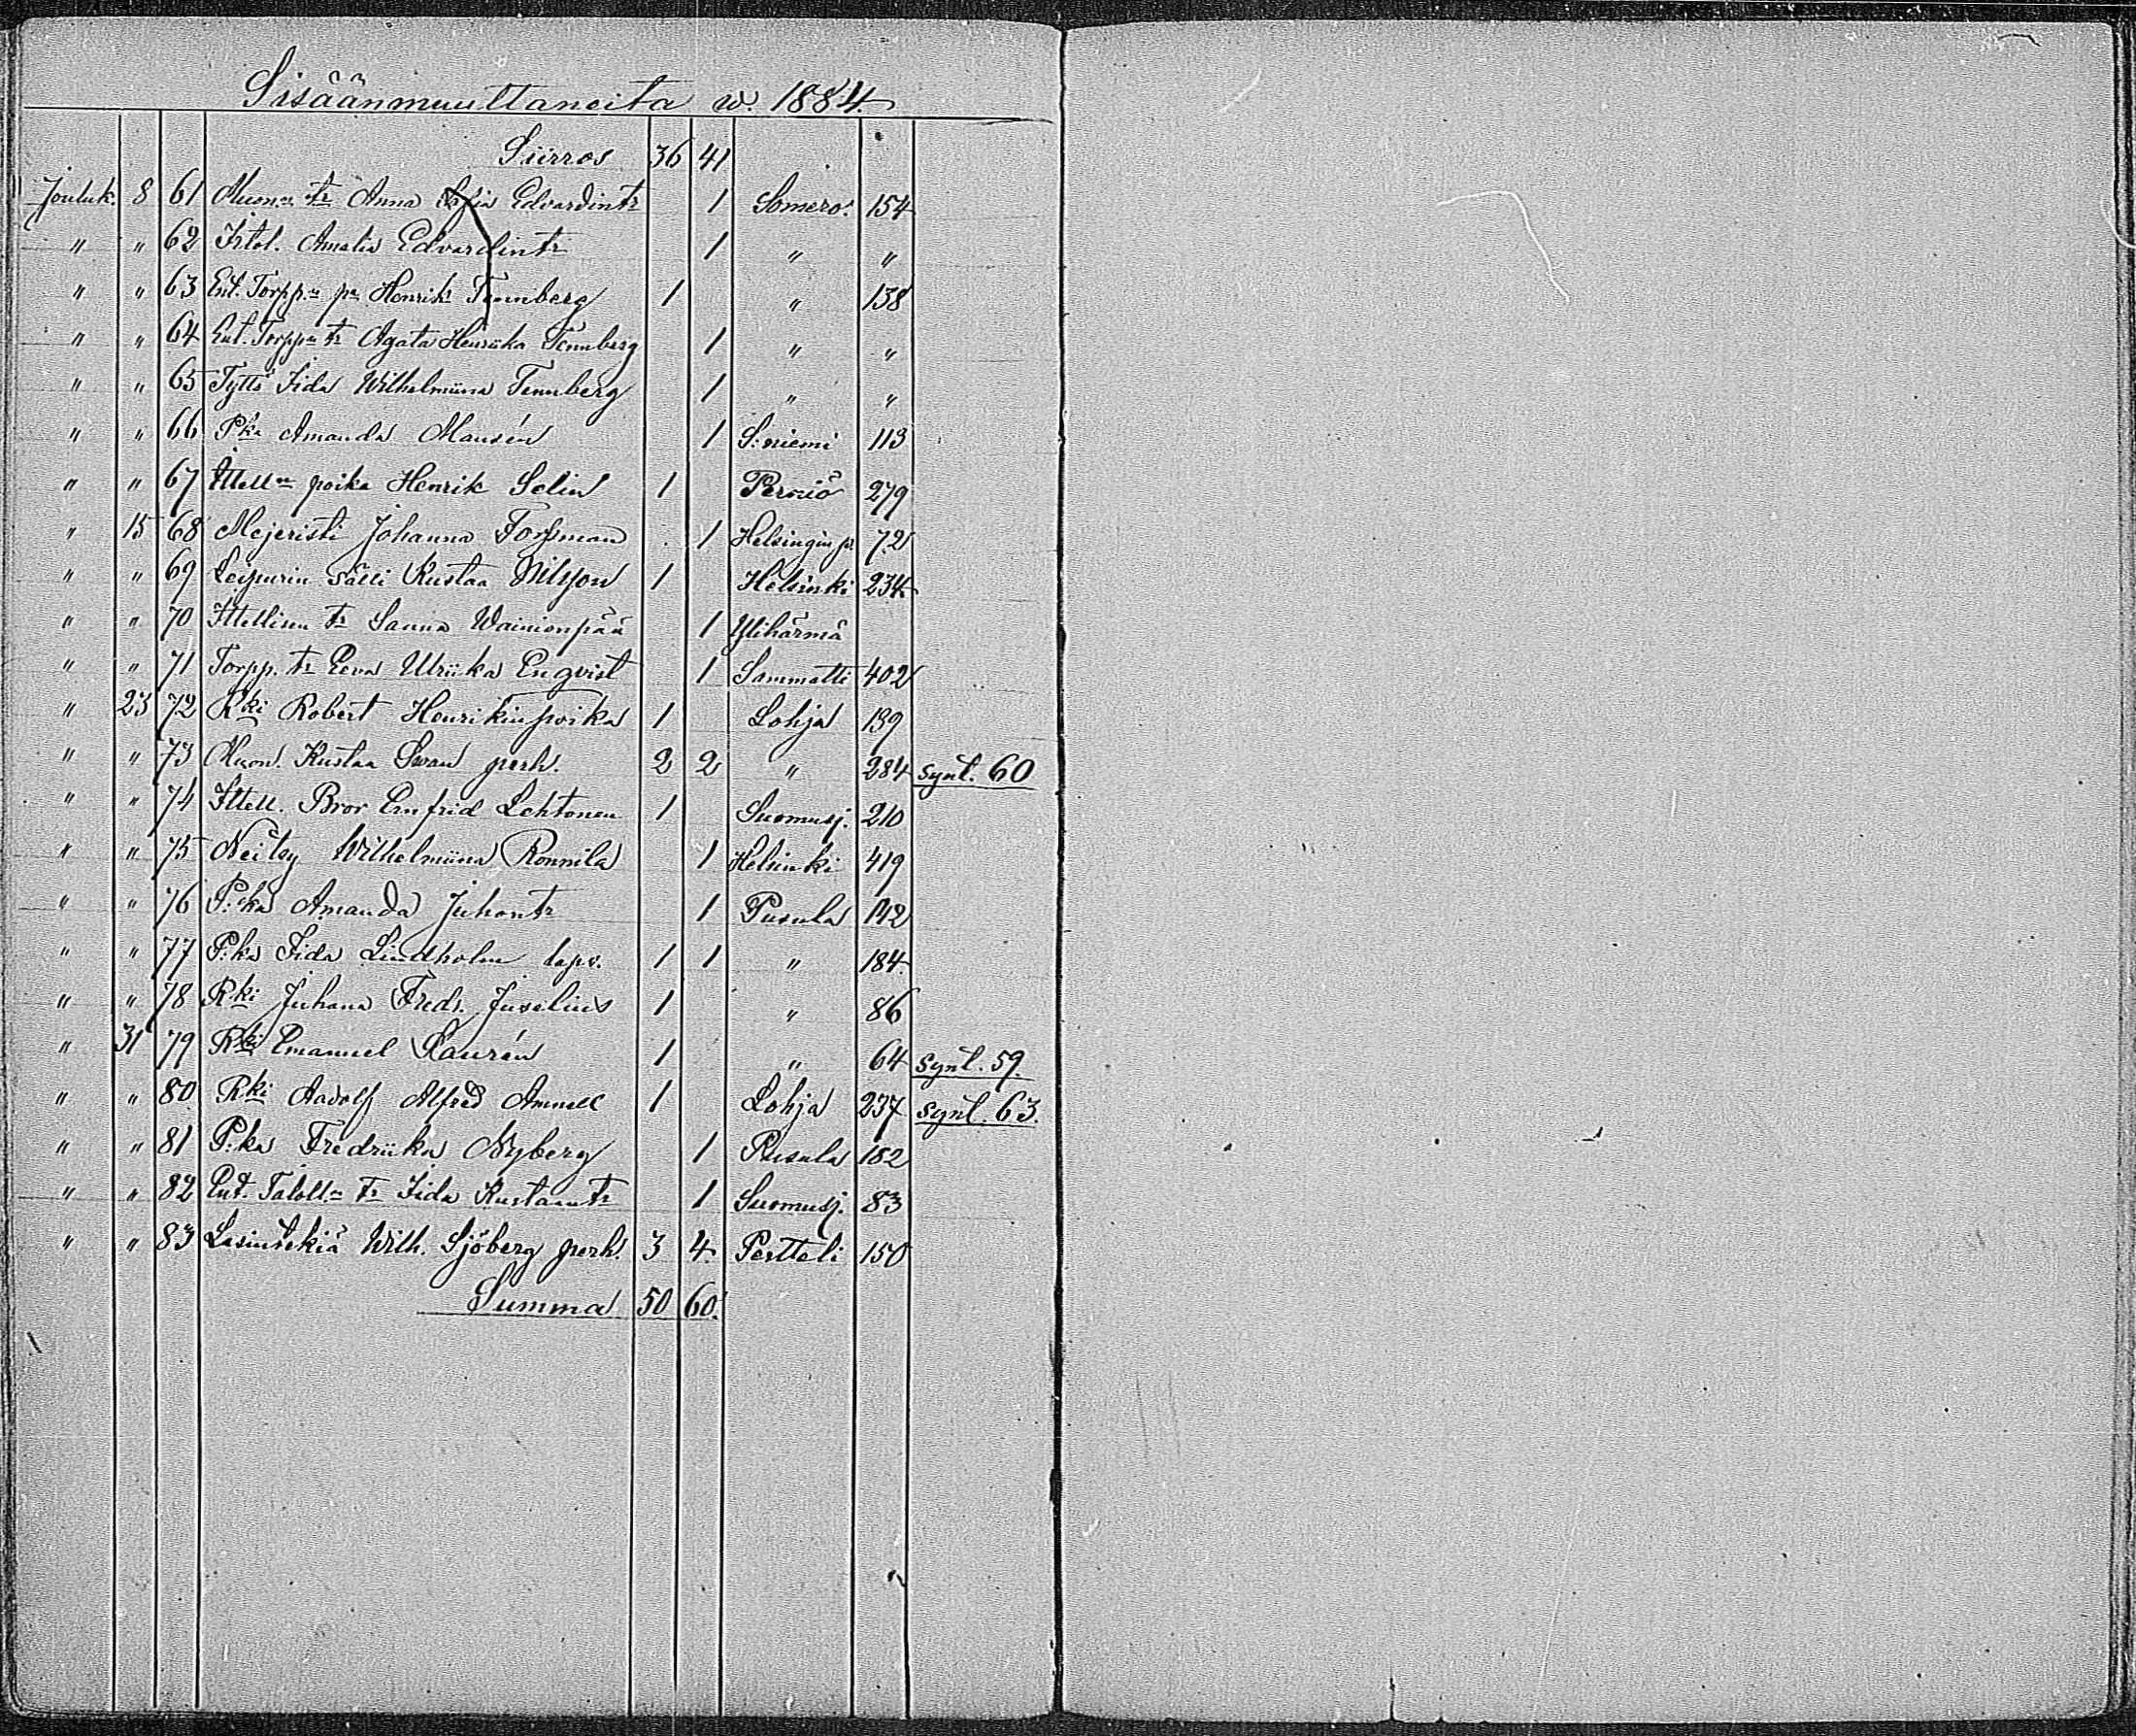 Sisäänmuuttaneita w. 1884.
Siirros 36 41
Jouluk. 8 61 Muon:n tr Anna Sofia Edvardintr 1 Somero. 154
" " 62 Itsel. Amalia Edvardintr 1 " "
" " 63 Ent. Torpp:n pa Henrik Tennberg 1 " 138
" " 64 Ent. Torpp:n tr Agata Henriika Tennberg 1 " "
" " 65 Tyttö Iida Wilhelmiina Tennberg 1 " "
" " 66 Pka Amanda Mausén 1 S:niemi 113
" " 67 Ittell:n poika Henrik Selin 1 Perniö 279
" 15 68 Mejeristi Johanna Forsman 1 Helsingin p. 72
" " 69 Leipurin sälli Kustaa Nilsson 1 Helsinki 234
" " 70 Ittellisen tr Sanna Wainionpää 1 Ylihärmä
" " 71 Torpp. tr Eeva Ulriika Enqvist 1 Sammatti 402
" 23 72 Rki Robert Henrikinpoika 1 Lohja 139
" " 73 Muon. Kustaa Swan perh. 2 2 " 284 synt. 60
" " 74 Ittell. Bror Ernfrid Lehtonen 1 Suomusj. 210
" " 75 Neitsy Wilhelmiina Ronnila 1 Helsinki 419
" " 76 P:ka Amanda Juhontr 1 Pusula 142
" " 77 P:ka Iida Lindholm laps. 1 1 " 184.
" " 78 Rki Juhana Fredr. Juselius 1 " 86
" 31 79 Rki Emanuel Laurén 1 " 64 synt. 59.
" " 80 Rki Aadolf Alfred Amnell 1 Lohja 237 synt. 63.
" " 81 P:ka Fredriika Nyberg 1 Pusula 182
" " 82 Ent. Taloll:n tr Iida Kustaantr 1 Suomusj. 83
" " 83 Lasintekiä Wilh. Sjöberg perh. 3 4 Pertteli 150
Summa 50 60.